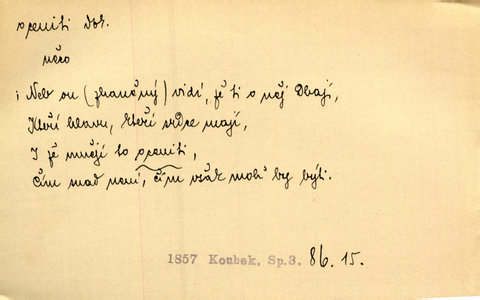 oceniti dok.
něco
i Neb on (zkaučený) vidí, že ti o něj dbají,
Kteří hlavu, kteří srdce mají,
I že umějí to oceniti,
Čím snad není, čím však mohl by býti.
1857 Koubek, Sp. 3. 86. 15.